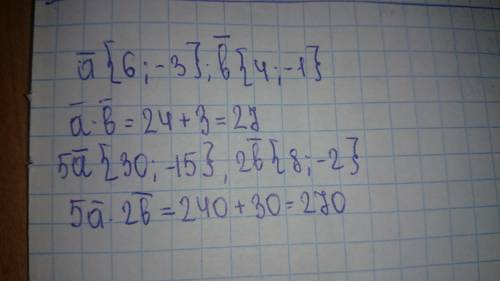 a̅{6;-3}; b̅{4;-1}
a̅·b̅=24+3=27
5a̅{30;-15}, 2b̅{8;-2}
5a̅·2b̅=240+30=270